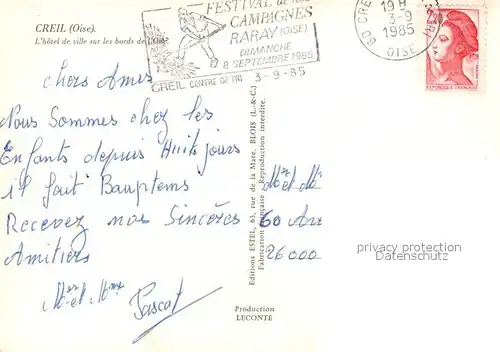 CREIL (Oise).
L'hôtel de ville sur les bords de l'Oise
FESTIVAL de
CAMPAGNES
RARAY (OISE)
DIMANCHE
8 SEPTEMBRE 1985
CREIL CENTRE DE TRI 3-9-85
60 CRE
19 H
3-9
1985
OISE
2,20
REPUBLIQUE FRANÇAISE
chers Amis
Nous Sommes chez les
Enfants depuis Huit jours
il fait Bauptems
Recevez nos Sincères
Amitiers
Mr et Mme Pascat
Editions ESTEL, 63, rue de la Mare, BLOIS (L.-&-C.)
Fabrication Française - Reproduction interdite.
Mr et M
60 Av
26000
privacy protection
Datenschutz
Production
LECONTE